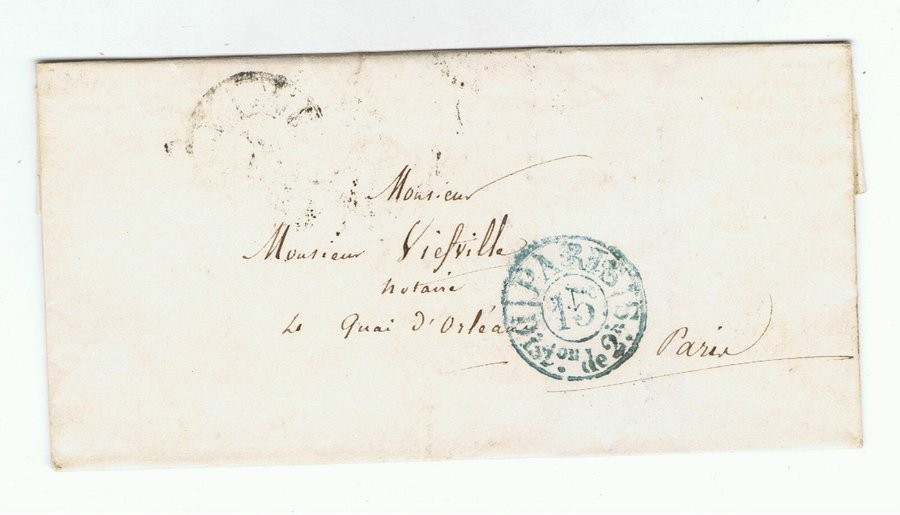 Monsieur
Monsieur Viefville
notaire
Quai d'Orléans
Paris
PARIS
15
de 2